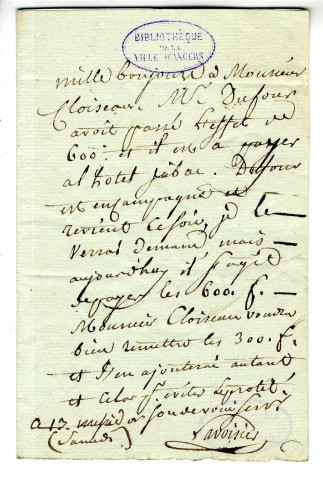 BIBLIOTHÈQUE
DE LA
VILLE D'ANGERS
mille bonjours à Monsieur
Cloiseau Mr. Dufour
avoit passé l'effet de
600. et il est à payer
a l'hotel Jabac. Dufour
est en campagne et
revient ce soir, je le
verrai demain mais
aujourdhuy il s'agit
de payer les 600. f.
Monsieur Cloiseau voudra
bien remettre les 300. f.
et j'en ajouterai autant
et cela évite le protêt.
a 17.
(Samedi) son devoué serv.
Lavoisier